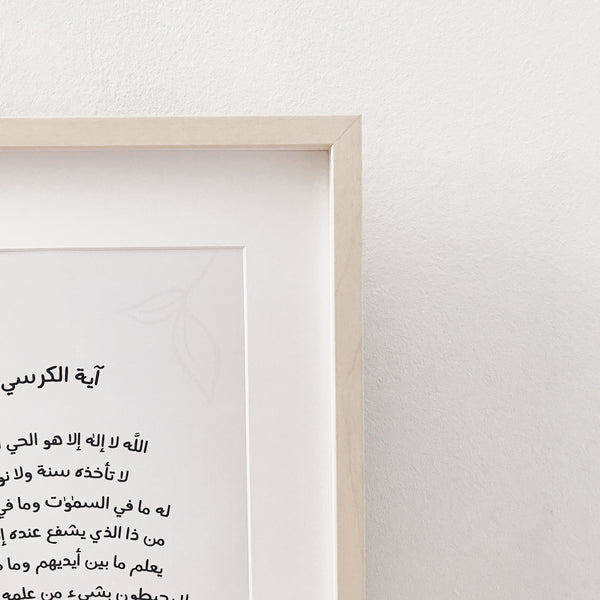 آية الكرسي
اللّه لا إله إلا هو الحي
لا تأخذه سنة ولا نو
له ما في السموت وما في
من ذا الذي يشفع عنده إ
يعلم ما بين أيديهم وما
يحيطون بشيء من علمه